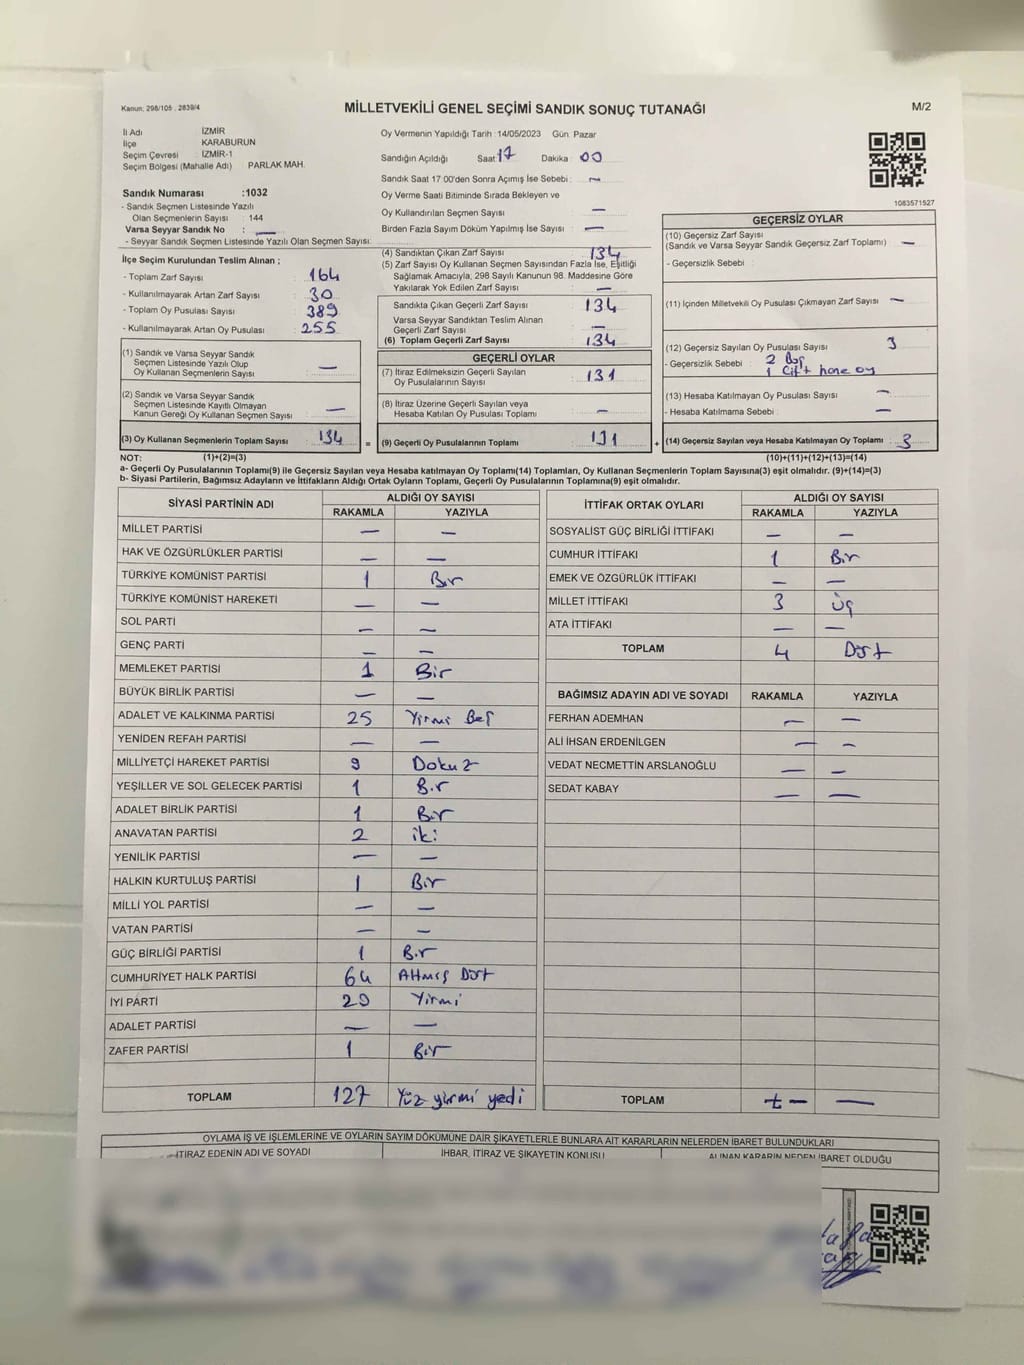 Kanun: 298/105 , 2839/4
MİLLETVEKİLİ GENEL SEÇİMİ SANDIK SONUÇ TUTANAĞI
M/2
İli Adı İZMİR
İlçe KARABURUN
Seçim Çevresi İZMİR-1
Seçim Bölgesi (Mahalle Adı) PARLAK MAH.
Sandık Numarası :1032
- Sandık Seçmen Listesinde Yazılı
Olan Seçmenlerin Sayısı : 144
Varsa Seyyar Sandık No : —
- Seyyar Sandık Seçmen Listesinde Yazılı Olan Seçmen Sayısı:
İlçe Seçim Kurulundan Teslim Alınan ;
- Toplam Zarf Sayısı : 164
- Kullanılmayarak Artan Zarf Sayısı : 30
- Toplam Oy Pusulası Sayısı : 389
- Kullanılmayarak Artan Oy Pusulası : 255
(1) Sandık ve Varsa Seyyar Sandık
Seçmen Listesinde Yazılı Olup
Oy Kullanan Seçmenlerin Sayısı : —
(2) Sandık ve Varsa Seyyar Sandık
Seçmen Listesinde Kayıtlı Olmayan
Kanun Gereği Oy Kullanan Seçmen Sayısı : —
(3) Oy Kullanan Seçmenlerin Toplam Sayısı : 134
Oy Vermenin Yapıldığı Tarih :14/05/2023 Gün: Pazar
Sandığın Açıldığı Saat 17 Dakika 00
Sandık Saat 17:00'den Sonra Açımış İse Sebebi : —
Oy Verme Saati Bitiminde Sırada Bekleyen ve
Oy Kullandırılan Seçmen Sayısı : —
Birden Fazla Sayım Döküm Yapılmış İse Sayısı : —
(4) Sandıktan Çıkan Zarf Sayısı : 134
(5) Zarf Sayısı Oy Kullanan Seçmen Sayısından Fazla İse, Eşitliği
Sağlamak Amacıyla, 298 Sayılı Kanunun 98. Maddesine Göre
Yakılarak Yok Edilen Zarf Sayısı : —
Sandıkta Çıkan Geçerli Zarf Sayısı : 134
Varsa Seyyar Sandıktan Teslim Alınan
Geçerli Zarf Sayısı : —
(6) Toplam Geçerli Zarf Sayısı : 134
GEÇERLİ OYLAR
(7) İtiraz Edilmeksizin Geçerli Sayılan
Oy Pusulalarının Sayısı : 131
(8) İtiraz Üzerine Geçerli Sayılan veya
Hesaba Katılan Oy Pusulası Toplamı : —
= (9) Geçerli Oy Pusulalarının Toplamı : 131
1083571527
GEÇERSİZ OYLAR
(10) Geçersiz Zarf Sayısı
(Sandık ve Varsa Seyyar Sandık Geçersiz Zarf Toplamı) : —
- Geçersizlik Sebebi :
(11) İçinden Milletvekili Oy Pusulası Çıkmayan Zarf Sayısı : —
(12) Geçersiz Sayılan Oy Pusulası Sayısı : 3
- Geçersizlik Sebebi : 2 Boş
1 Çift hane oy
(13) Hesaba Katılmayan Oy Pusulası Sayısı : —
- Hesaba Katılmama Sebebi : —
+ (14) Geçersiz Sayılan veya Hesaba Katılmayan Oy Toplamı : 3
NOT: (1)+(2)=(3) (10)+(11)+(12)+(13)=(14)
a- Geçerli Oy Pusulalarının Toplamı(9) ile Geçersiz Sayılan veya Hesaba katılmayan Oy Toplamı(14) Toplamları, Oy Kullanan Seçmenlerin Toplam Sayısına(3) eşit olmalıdır. (9)+(14)=(3)
b- Siyasi Partilerin, Bağımsız Adayların ve İttifakların Aldığı Ortak Oyların Toplamı, Geçerli Oy Pusulalarının Toplamına(9) eşit olmalıdır.
SİYASİ PARTİNİN ADI ALDIĞI OY SAYISI
RAKAMLA YAZIYLA
MİLLET PARTİSİ — —
HAK VE ÖZGÜRLÜKLER PARTİSİ — —
TÜRKİYE KOMÜNİST PARTİSİ 1 Bir
TÜRKİYE KOMÜNİST HAREKETİ — —
SOL PARTİ — —
GENÇ PARTİ — —
MEMLEKET PARTİSİ 1 Bir
BÜYÜK BİRLİK PARTİSİ — —
ADALET VE KALKINMA PARTİSİ 25 Yirmi Beş
YENİDEN REFAH PARTİSİ — —
MİLLİYETÇİ HAREKET PARTİSİ 9 Dokuz
YEŞİLLER VE SOL GELECEK PARTİSİ 1 Bir
ADALET BİRLİK PARTİSİ 1 Bir
ANAVATAN PARTİSİ 2 iki
YENİLİK PARTİSİ — —
HALKIN KURTULUŞ PARTİSİ 1 Bir
MİLLİ YOL PARTİSİ — —
VATAN PARTİSİ — —
GÜÇ BİRLİĞİ PARTİSİ 1 Bir
CUMHURİYET HALK PARTİSİ 64 Altmış Dört
İYİ PARTİ 20 Yirmi
ADALET PARTİSİ — —
ZAFER PARTİSİ 1 Bir
TOPLAM 127 Yüz yirmi yedi
İTTİFAK ORTAK OYLARI ALDIĞI OY SAYISI
RAKAMLA YAZIYLA
SOSYALİST GÜÇ BİRLİĞİ İTTİFAKI — —
CUMHUR İTTİFAKI 1 Bir
EMEK VE ÖZGÜRLÜK İTTİFAKI — —
MİLLET İTTİFAKI 3 Üç
ATA İTTİFAKI — —
TOPLAM 4 Dört
BAĞIMSIZ ADAYIN ADI VE SOYADI RAKAMLA YAZIYLA
FERHAN ADEMHAN — —
ALİ İHSAN ERDENİLGEN — —
VEDAT NECMETTİN ARSLANOĞLU — —
SEDAT KABAY — —
TOPLAM — —
OYLAMA İŞ VE İŞLEMLERİNE VE OYLARIN SAYIM DÖKÜMÜNE DAİR ŞİKAYETLERLE BUNLARA AİT KARARLARIN NELERDEN İBARET BULUNDUKLARI
İTİRAZ EDENİN ADI VE SOYADI İHBAR, İTİRAZ VE ŞİKAYETİN KONUSU ALINAN KARARIN NEDEN İBARET OLDUĞU